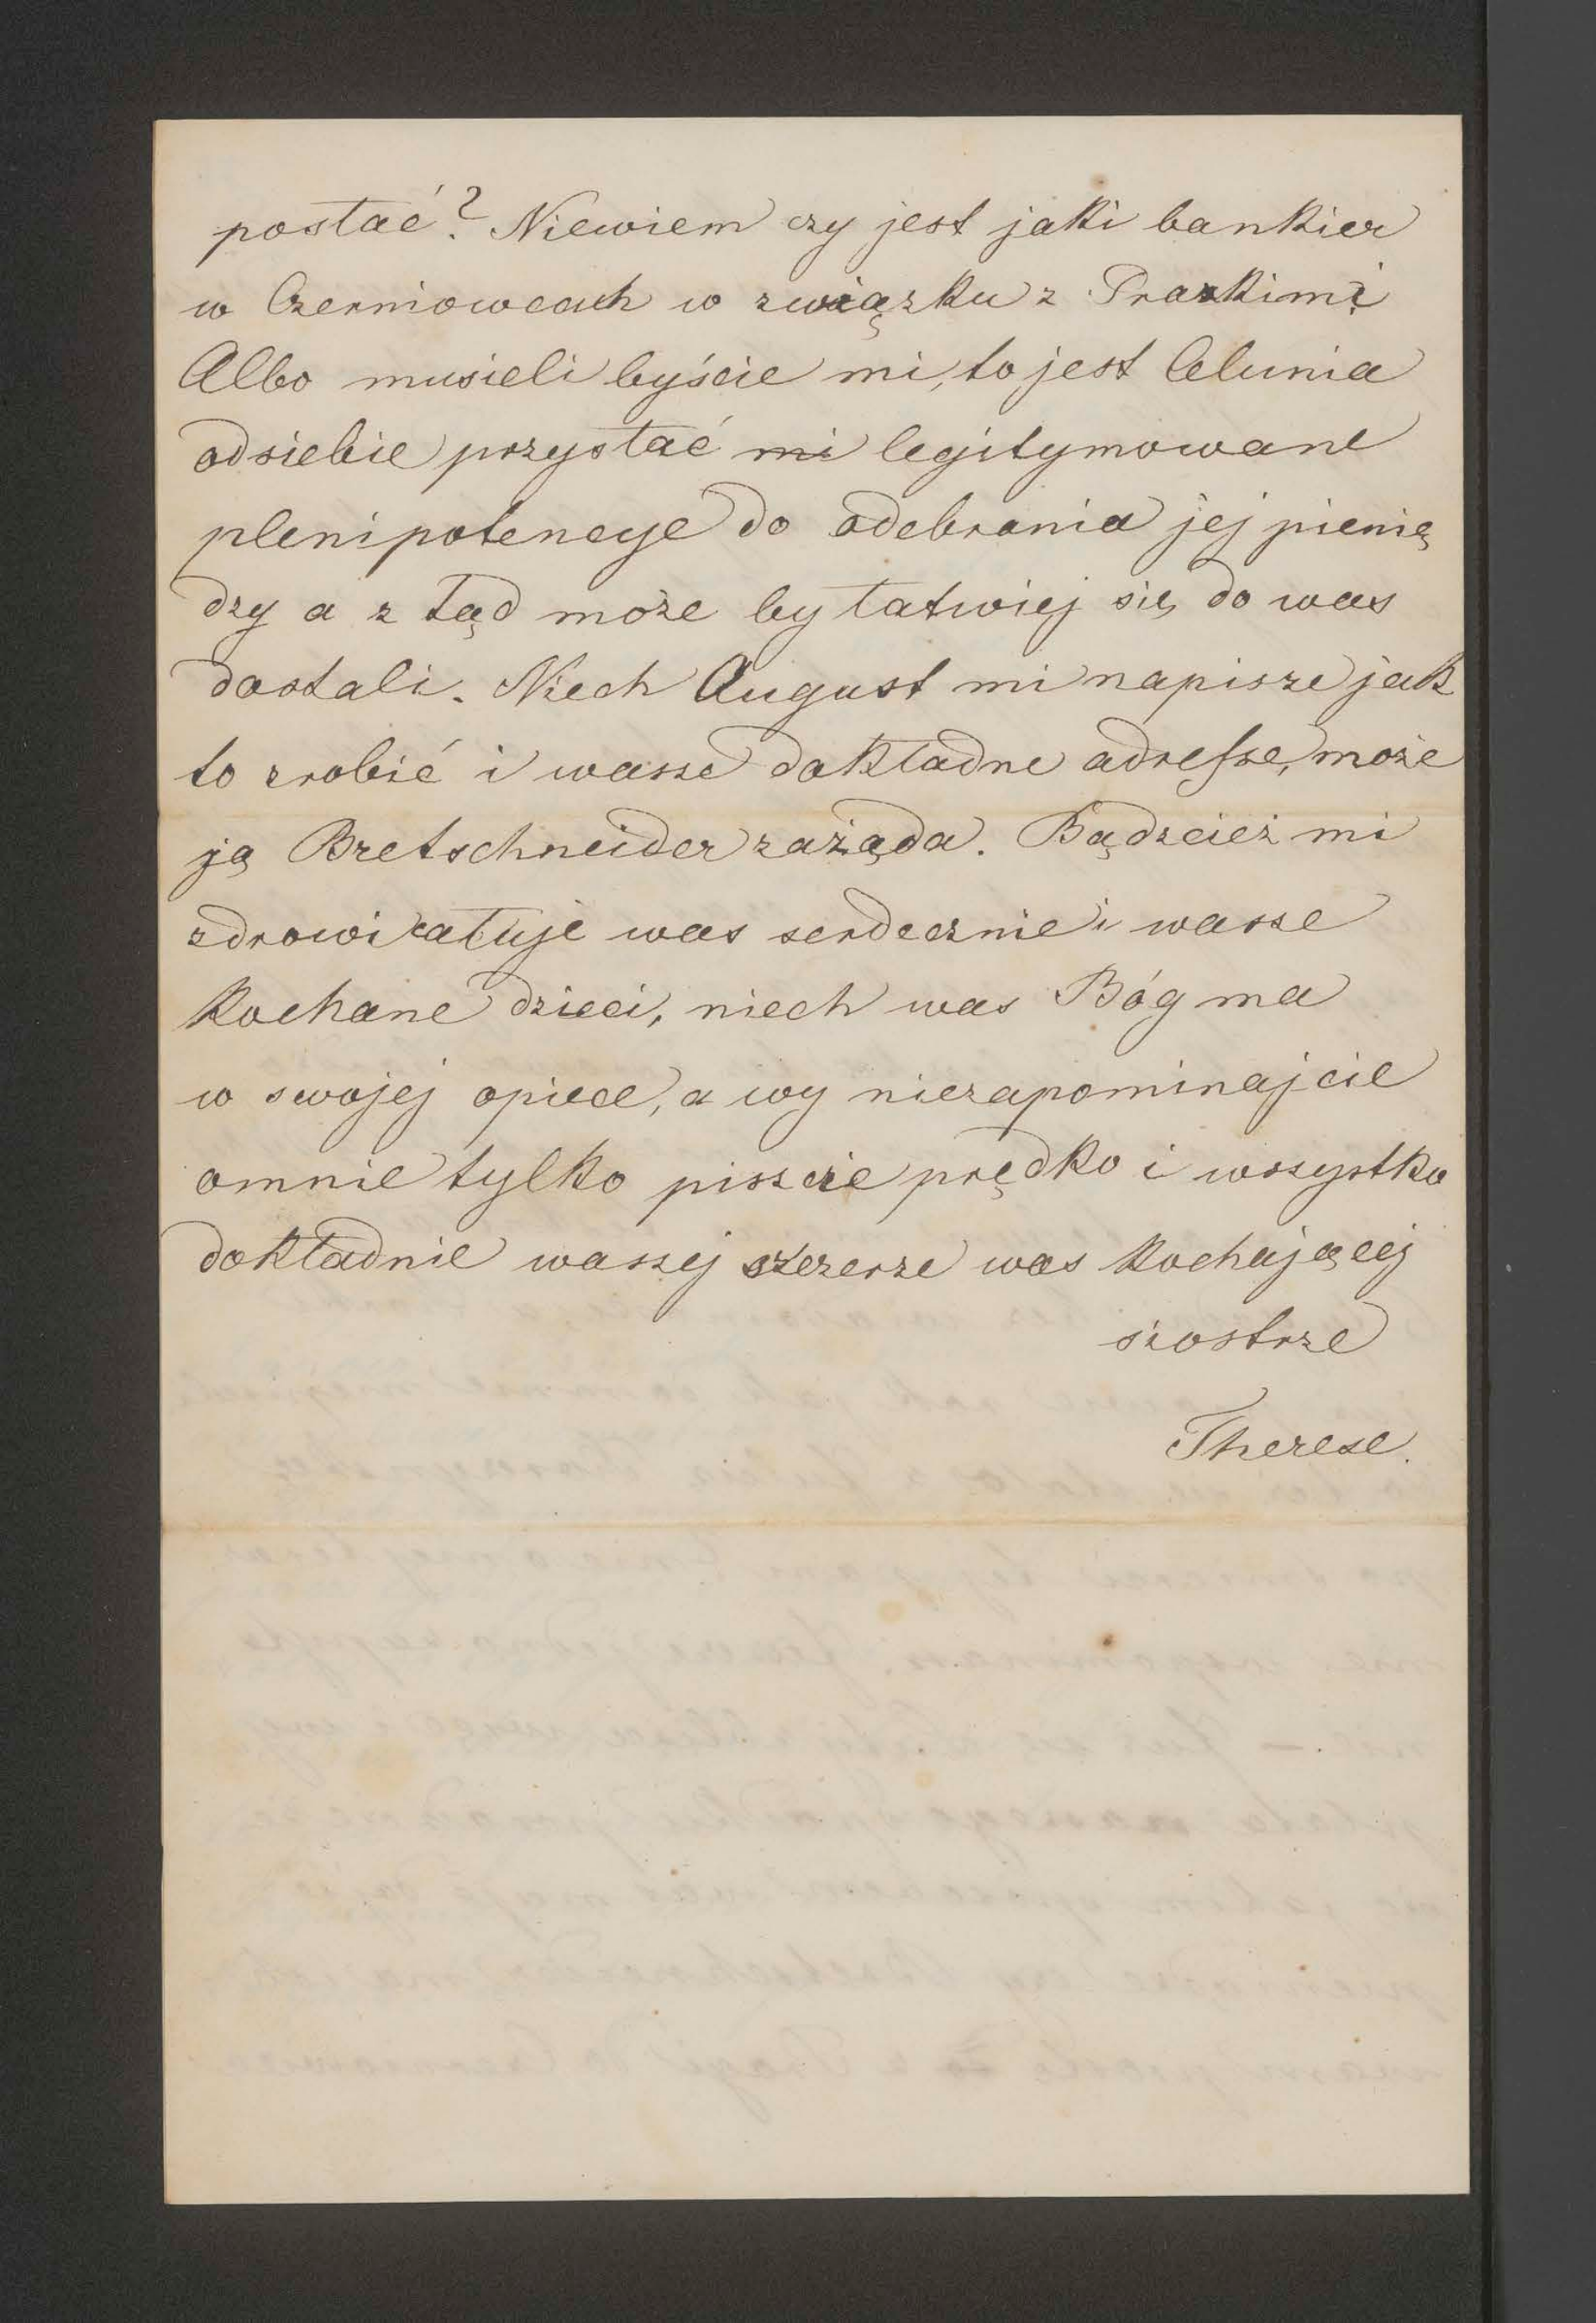 posłać? Niewiem czy jest jaki bankier
w Czerniowcach w związku z Prazkimi
Albo musieli byście mi, to jest Celunia
odsiebie przysłać mi legitymowane
plenipotencye do odebrania jej pienię
dzy a z tąd może by łatwiej się do was
dostali. Niech August mi napisze jak
to zrobić i wasze dokładne adresse, może
ją Bretschneider zażąda. Bądzcież mi
zdrowi całuje was serdecznie i wasze
kochane dzieci, niech was Bóg ma
w swojej opiece, a wy niezapominajcie
omnie tylko piszcie prędko i wszystko
dokładnie waszej szczerze was kochającej
siostrze
Therese.